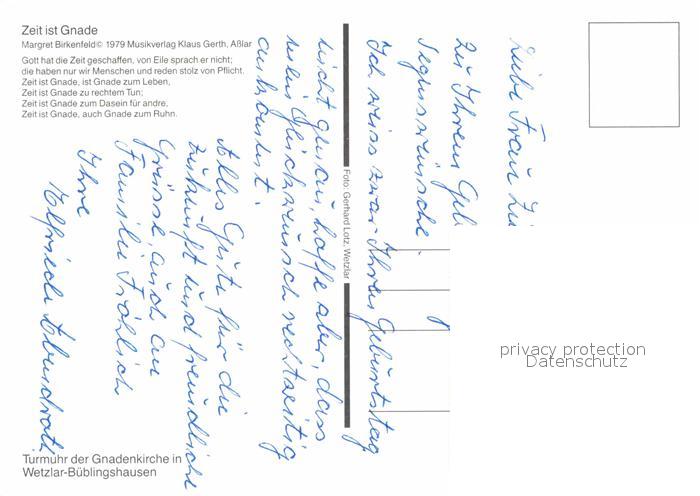 Zeit ist Gnade
Margret Birkenfeld© 1979 Musikverlag Klaus Gerth, Aßlar
Gott hat die Zeit geschaffen, von Eile sprach er nicht;
die haben nur wir Menschen und reden stolz von Pflicht.
Zeit ist Gnade, ist Gnade zum Leben,
Zeit ist Gnade zu rechtem Tun;
Zeit ist Gnade zum Dasein für andre,
Zeit ist Gnade, auch Gnade zum Ruhn.
Liebe Frau Li
Zu Ihrem Geb
Segenswünsche.
Ich weiss zwar Ihren Geburtstag
nicht genau, hoffe aber, dass
mein Glückwunsch rechtzeitig
ankommt.
Alles Gute für die
Zukunft und freundliche
Grüsse, auch an
Familie Fröhlich
Ihre
Foto: Gerhard Lotz, Wetzlar
privacy protection
Datenschutz
Turmuhr der Gnadenkirche in
Wetzlar-Büblingshausen